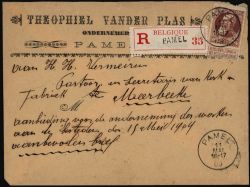 THEOPHIEL VANDER PLAS
ONDERNEMER
PAMEL
R BELGIQUE
PAMEL 35
aan H. H. Vermeiren
Pastoor en Secretaris van Kerk
fabriek te Meerbeke
aanbieding voor de aanneming der werken
15 Mei 1904
aanbevolen brief
PAMEL
11
MAI
16-17